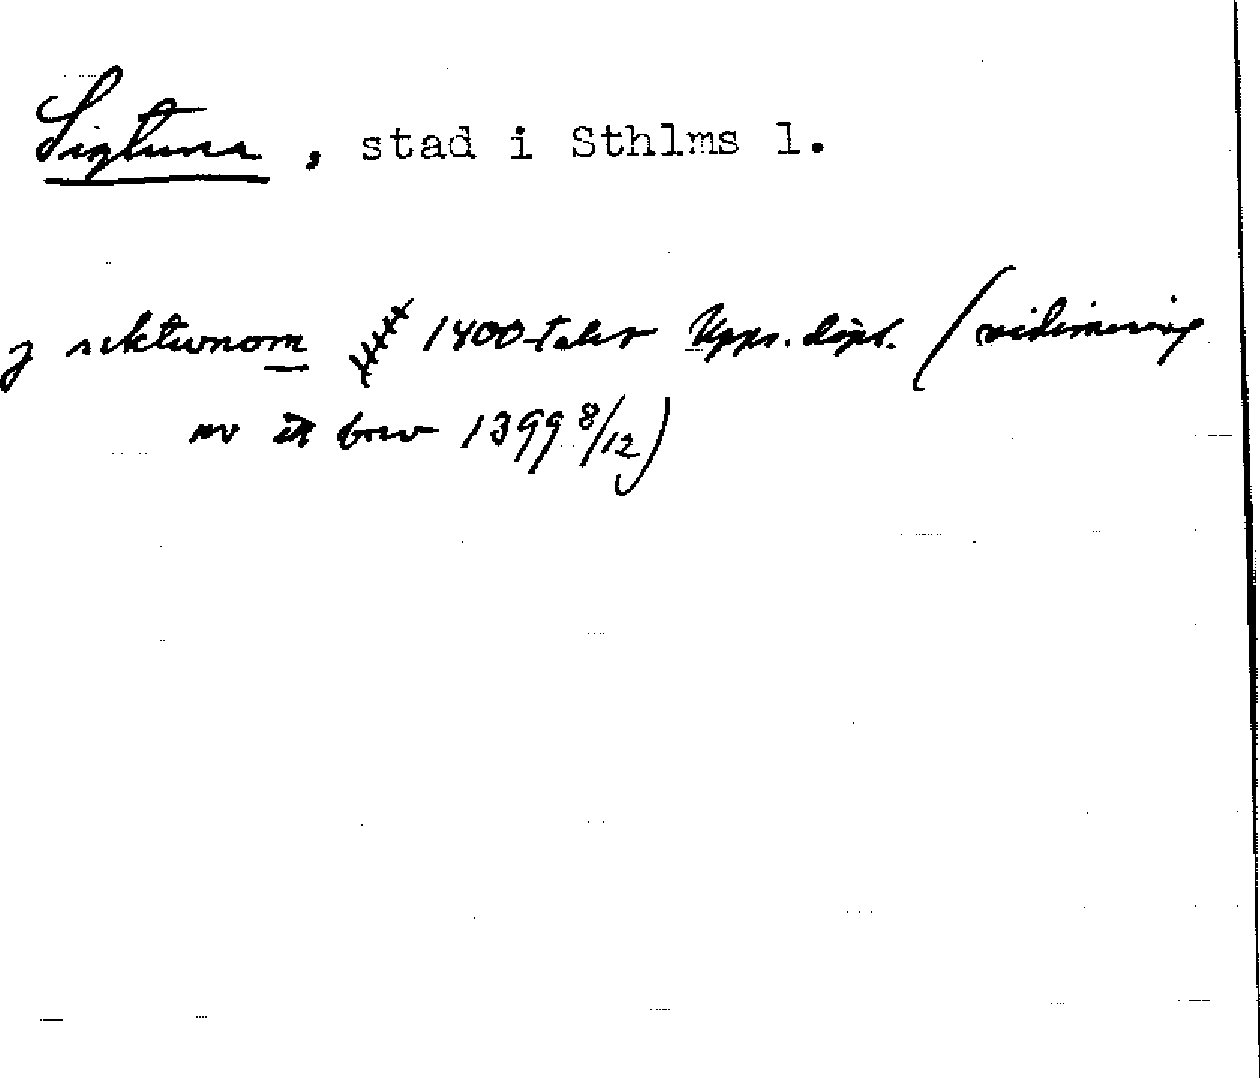 Sigtuna, stad i Sthlms l.
j siktwnom 1400-talet Upps. dipl. (vidimering
av ett brev 1399 8/12)